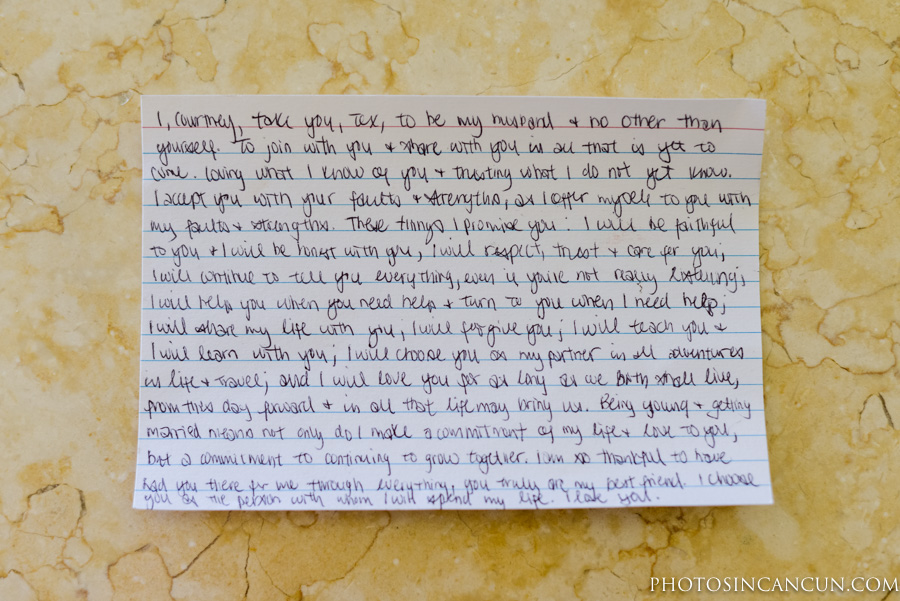 I, Courtney, take you, Tex, to be my husband & no other than
yourself. To join with you & share with you in all that is yet to
come. Loving what I know of you & trusting what I do not yet know.
I accept you with your faults & strengths, as I offer myself to you with
my faults & strengths. These things I promise you: I will be faithful
to you & I will be honest with you, I will respect, trust & care for you;
I will continue to tell you everything, even if you're not really listening;
I will help you when you need help & turn to you when I need help;
I will share my life with you; I will forgive you; I will teach you &
I will learn with you; I will choose you as my partner in all adventures
in life & travel; and I will love you for as long as we both shall live,
from this day forward & in all that life may bring us. Being young & getting
married means not only do I make a commitment of my life & love to you,
but a commitment to continuing to grow together. I am so thankful to have
had you there for me through everything, you truly are my best friend. I choose
you as the person with whom I will spend my life. I love you.
PHOTOSINCANCUN.COM